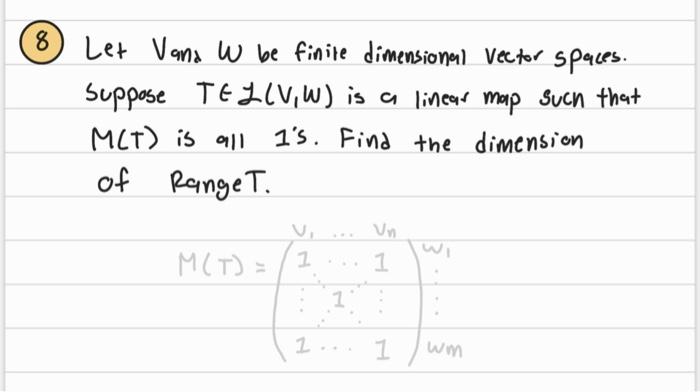 8 Let V and W be finite dimensional vector spaces.
Suppose T ∈ L(V,W) is a linear map such that
M(T) is all 1's. Find the dimension
of Range T.
V₁ ... Vn
M(T) = ( 1 ... 1 ) W₁
⋮ 1 ⋮ ⋮
1 ... 1 Wm